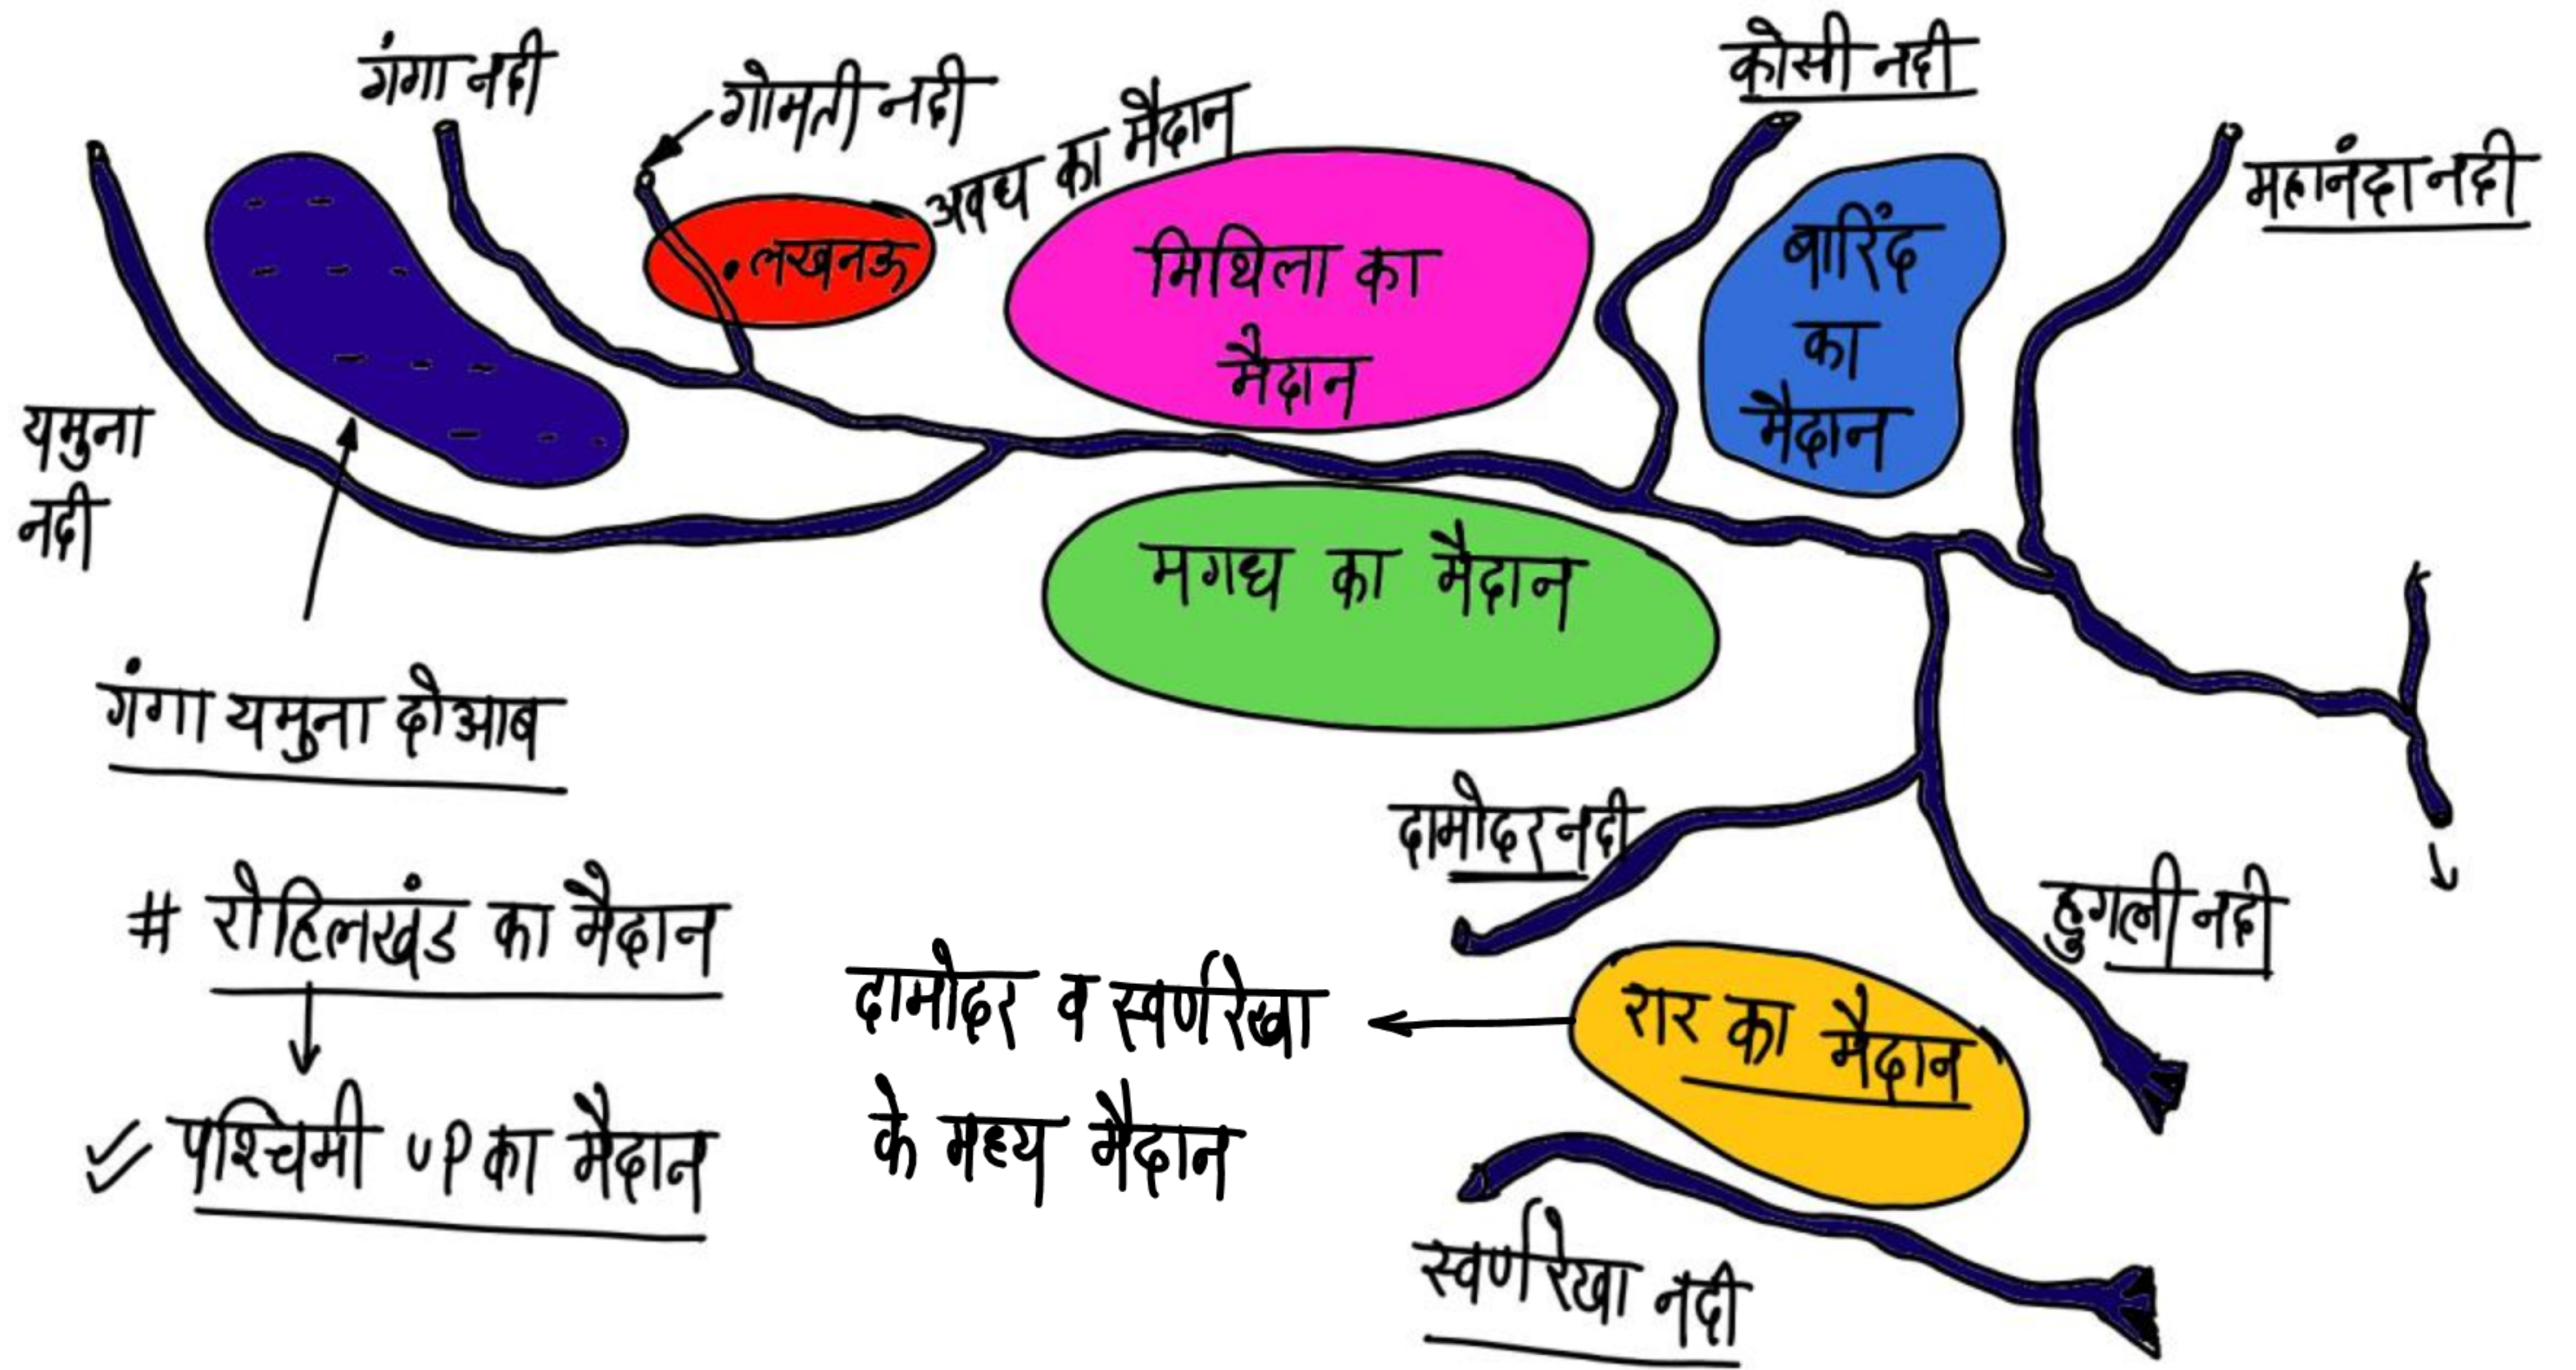 गंगा नदी
गोमती नदी
अवध का मैदान
कोसी नदी
महानंदा नदी
लखनऊ
मिथिला का
मैदान
बारिंद
का
मैदान
यमुना
नदी
मगध का मैदान
गंगा यमुना दोआब
दामोदर नदी
हुगली नदी
# रोहिलखंड का मैदान
दामोदर व स्वर्ण रेखा
के मध्य मैदान
रार का मैदान
पश्चिमी UP का मैदान
स्वर्ण रेखा नदी